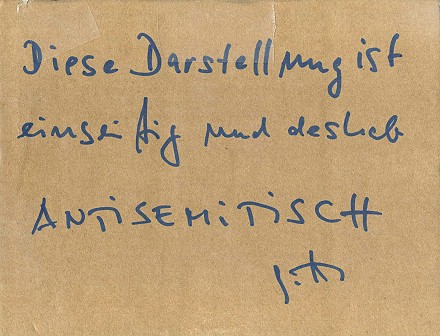 Diese Darstellung ist
einseitig und deshalb
ANTISEMITISCH